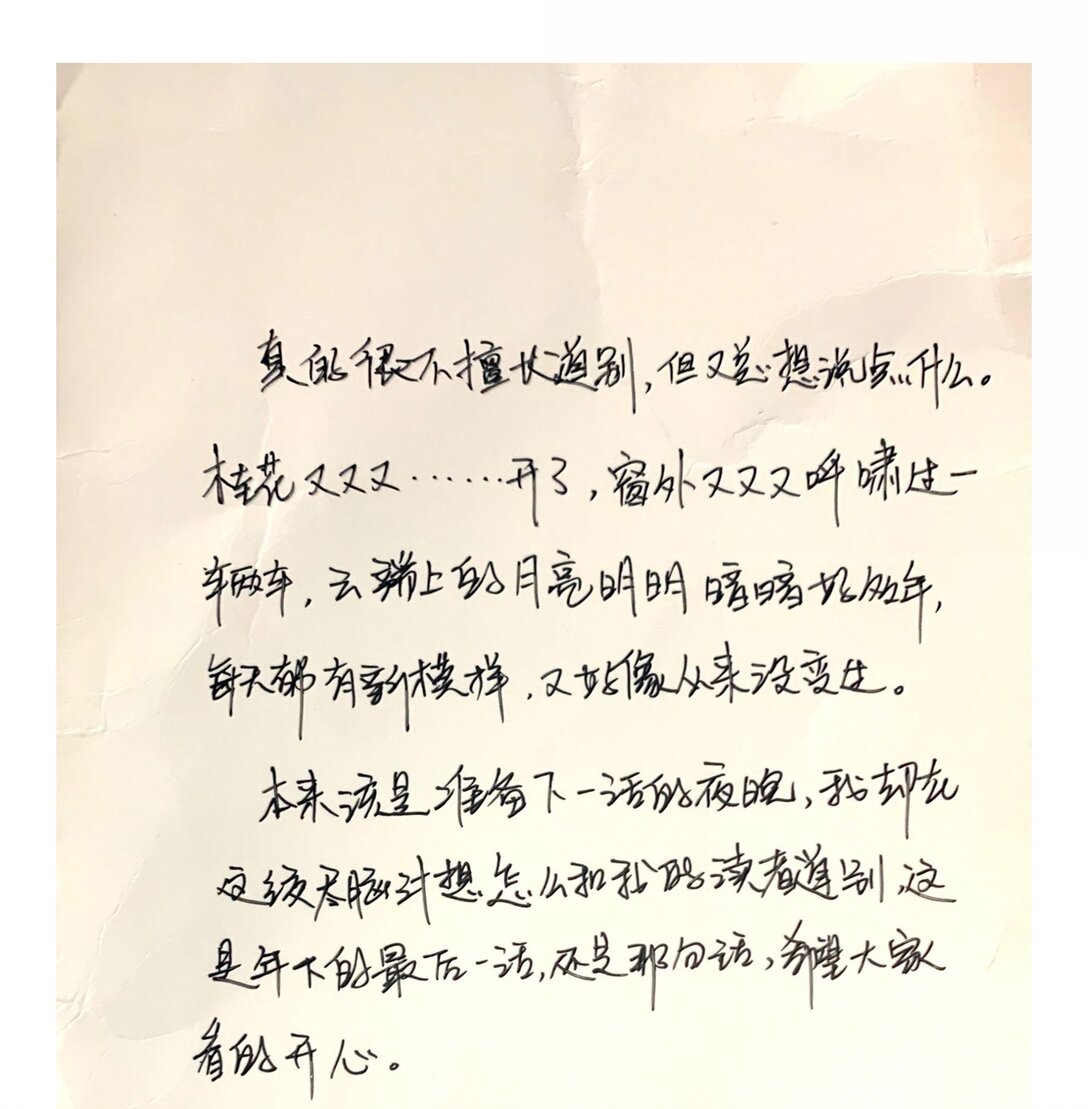 真的很不擅长道别，但又总想说点什么。
桂花又又又……开了，窗外又又又呼啸过一
辆车，云端上的月亮明明暗暗好些年，
每天都有新模样，又好像从来没变过。
本来该是准备下一话的夜晚，我却在
这绞尽脑汁想怎么和我的读者道别，这
是年下的最后一话，还是那句话，希望大家
看的开心。